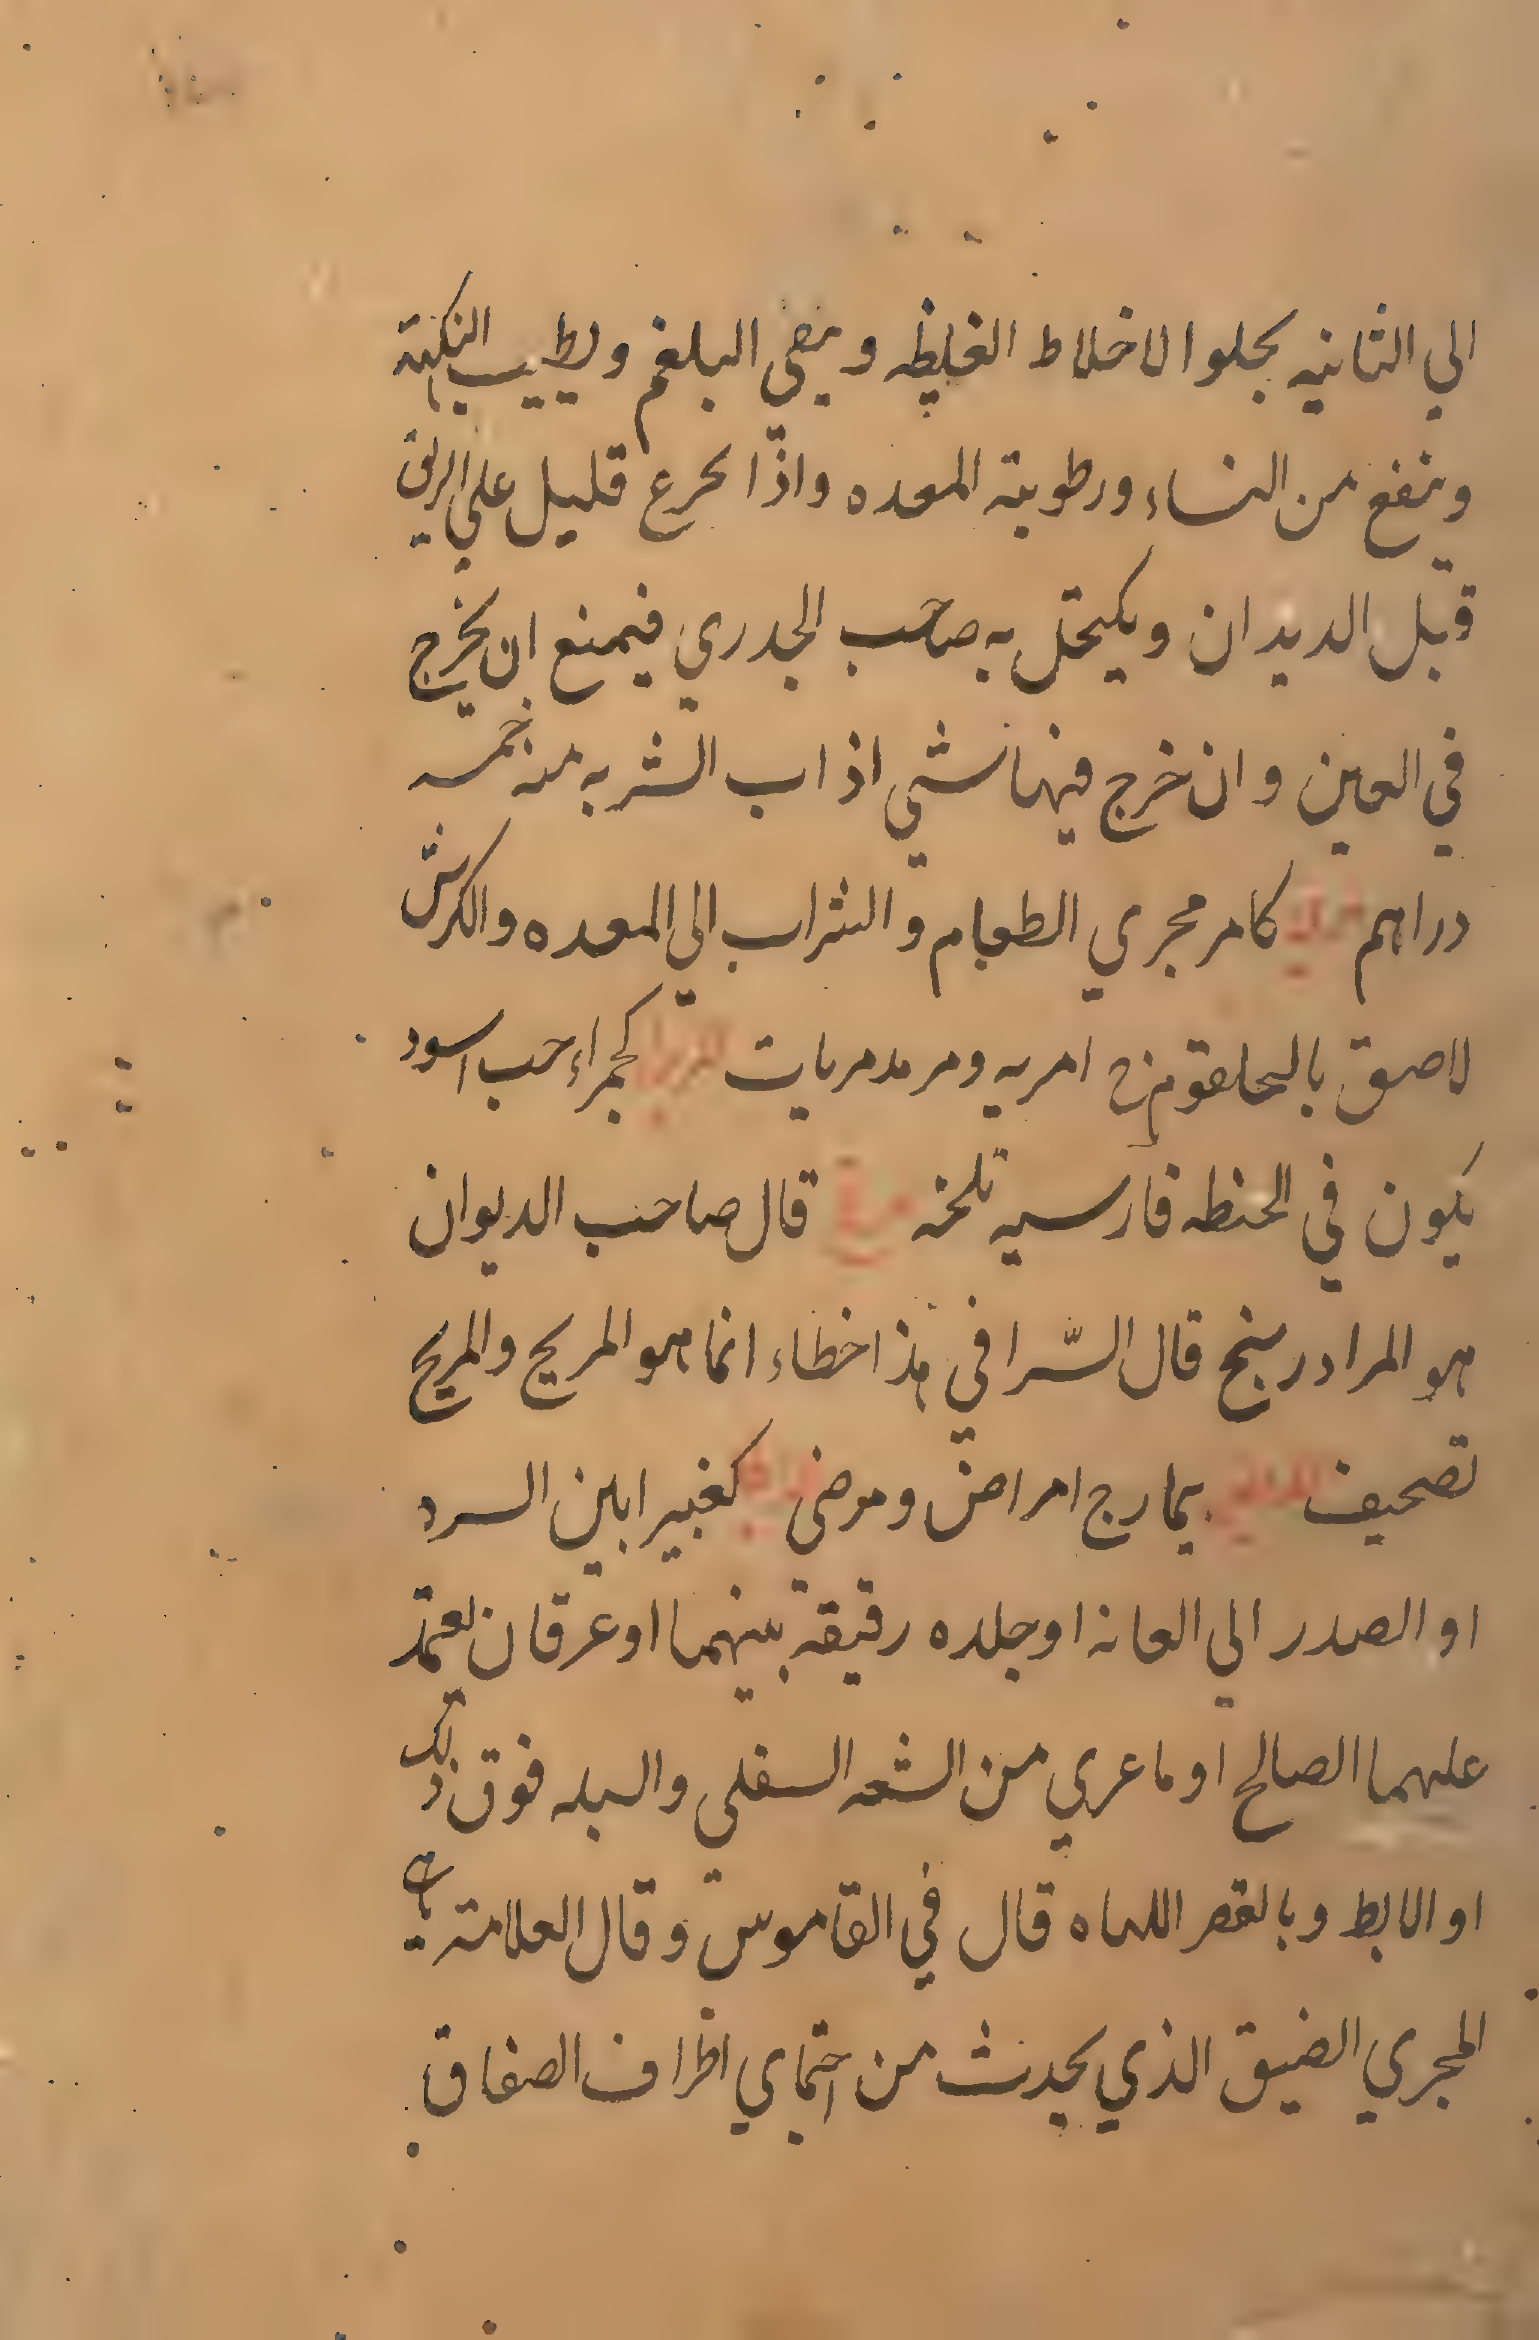 الي الثانيه يجلوا الاخلاط الغليظه وينقي البلغم ويطيب النكهة
وينفع من النساء ورطوبة المعده واذا تجرع قليل علي الريق
قتل الديدان ويكتحل به صاحب الجدري فيمنع ان يخرج
في العين وان خرج فيها شي اذاب الشربه منه خمسه
دراهم كامر مجري الطعام والشراب الي المعده والكرش
لاصق بالحلقوم ج امريه ومر كحمراء حب اسود
يكون في الحنطه فارسيه تلخه قال صاحب الديوان
هو المرادرسنج قال السرافي هذا خطاء انما هو المريح والمريج
تصحيف بمارج امراض ومرضي كغبيرا بين السره
او الصدر الي العانه او جلده رقيقة بينهما او عرقان يعتمد
عليهما الصالح او ما عري من الشفه السفلي والسبله فوق ذلك
او الابط وبالقصر اللهاه قال في القاموس وقال العلامة هي
المجري الضيق الذي يحدث من اطراف الصفاق